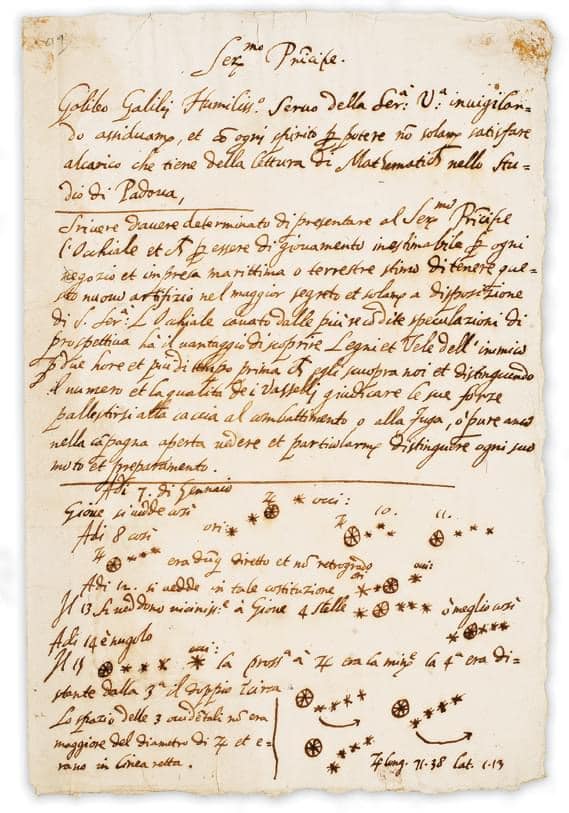 Ser.mo Prīcipe.
Galileo Galilej Humiliss.o Seruo della Ser.a V.a inuigilan-
do assiduamē, et cō ogni spirito p potere nō solamē satisfare
alcarico che tiene della lettura di Mathematich nello Stu-
dio di Padoua,
Scriuere dauere determinato di presentare al Ser.mo Prīcipe
l'Occhiale et p essere di giouamento inestimabile p ogni
negozio et impresa marittima o terrestre stimo di tenere que-
sto nuouo artifizio nel maggior segreto et solamē a disposizione
di S. Ser.a L'Occhiale cauato dalle più recōdite speculazioni di
prospettiua ha il uantaggio di scoprire Legni et Vele dell'inimico
p due hore et più di tempo prima ch egli scuopra noi et distinguendo
il numero et la qualità de i Vasselli giudicare le sue forze
pallestirsi alla caccia al combattimento o alla fuga, o pure anco
nella cāpagna aperta uedere et particularmē distinguere ogni suo
moto et preparamento.
Adi 7. di Gennaio
Gioue si uedde così ♃ occi:
Adi 8 così ori: ♃ 10. 11.
♃ era dūq diretto et nō retrogrado
Adi 12. si uedde in tale costituzione ori occi:
Il 13 si ueddono uicinis.e à Gioue 4 stelle ò meglio così
Adi 14 è nugolo
Il 15 occi: la pross.a à ♃ era la min.e la 4.a era di-
stante dalla 3.a il doppio circa
Lo spazio delle 3 occidētali nō era
maggiore del diametro di ♃ et e-
rano in linea retta.
♃ long. 71.38 lat. 1.13